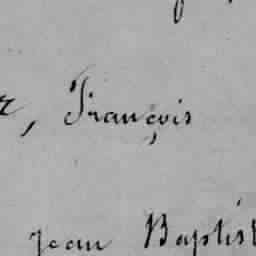 , François
Jean Baptist